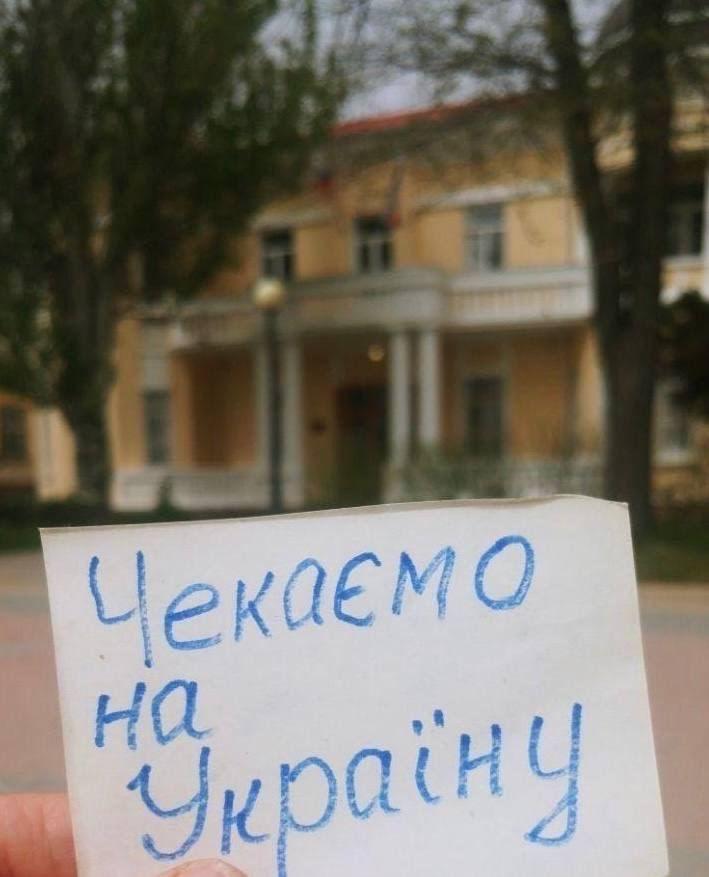 Чекаємо
на
Україну